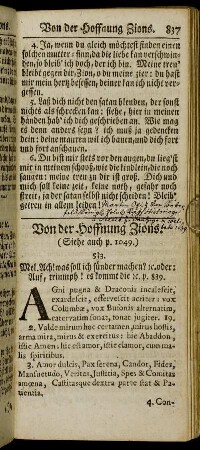 Von der Hoffnung Zions. 837
4. Ja, wenn du gleich möchtest finden einen
solchen mutter-sinn, da die liebe kan verschwin-
den, so bleib' ich doch, der ich bin. Meine treu'
bleibt gegen dir, Zion, o du meine zier: du hast
mir mein hertz besessen, deiner kan ich nicht ver-
gessen.
5. Laß dich nicht den satan blenden, der sonst
nichts als schrecken kan: siehe, hier in meinen
händen hab' ich dich geschrieben an. Wie mag
es denn anders seyn? ich muß ja gedencken
dein: deine mauren wil ich bauen, und dich fort
und fort anschauen.
6. Du bist mir stets vor den augen, du liegst
mir in meinem schoos, wie die kindlein, die noch
saugen: meine treu zu dir ist groß. Dich und
mich soll keine zeit, keine noth, gefahr noch
streit, ja der satan selbst nicht scheiden: Bleib'
getreu in allem leiden!
Von der Hoffnung Zions.
(Siehe auch p. 1049.)
583.
Mel. Ach! was soll ich sünder machen? ic. oder:
Auf, triumph! es kommt die ic. p. 839.
AGni pugna & Draconis incalescit,
exardescit, effervescit acriter: vox
Columbæ, vox Bufonis alternatim,
catervatim sonat, tonat jugiter. 19.
2. Valde mirum huc certamen, mirus hostis,
arma mira, mirus & exercitus: hoc Abaddon,
iste Amen: hic est amor, iste clamor, cum ma-
lis spiritibus.
3. Amor dulcis, Pax serena, Candor, Fides,
Mansuetudo, Veritas, Justitia, Spes & Comitas
amœna, Castitasque dextra parte stat & Pa-
tientia.
4. Con-